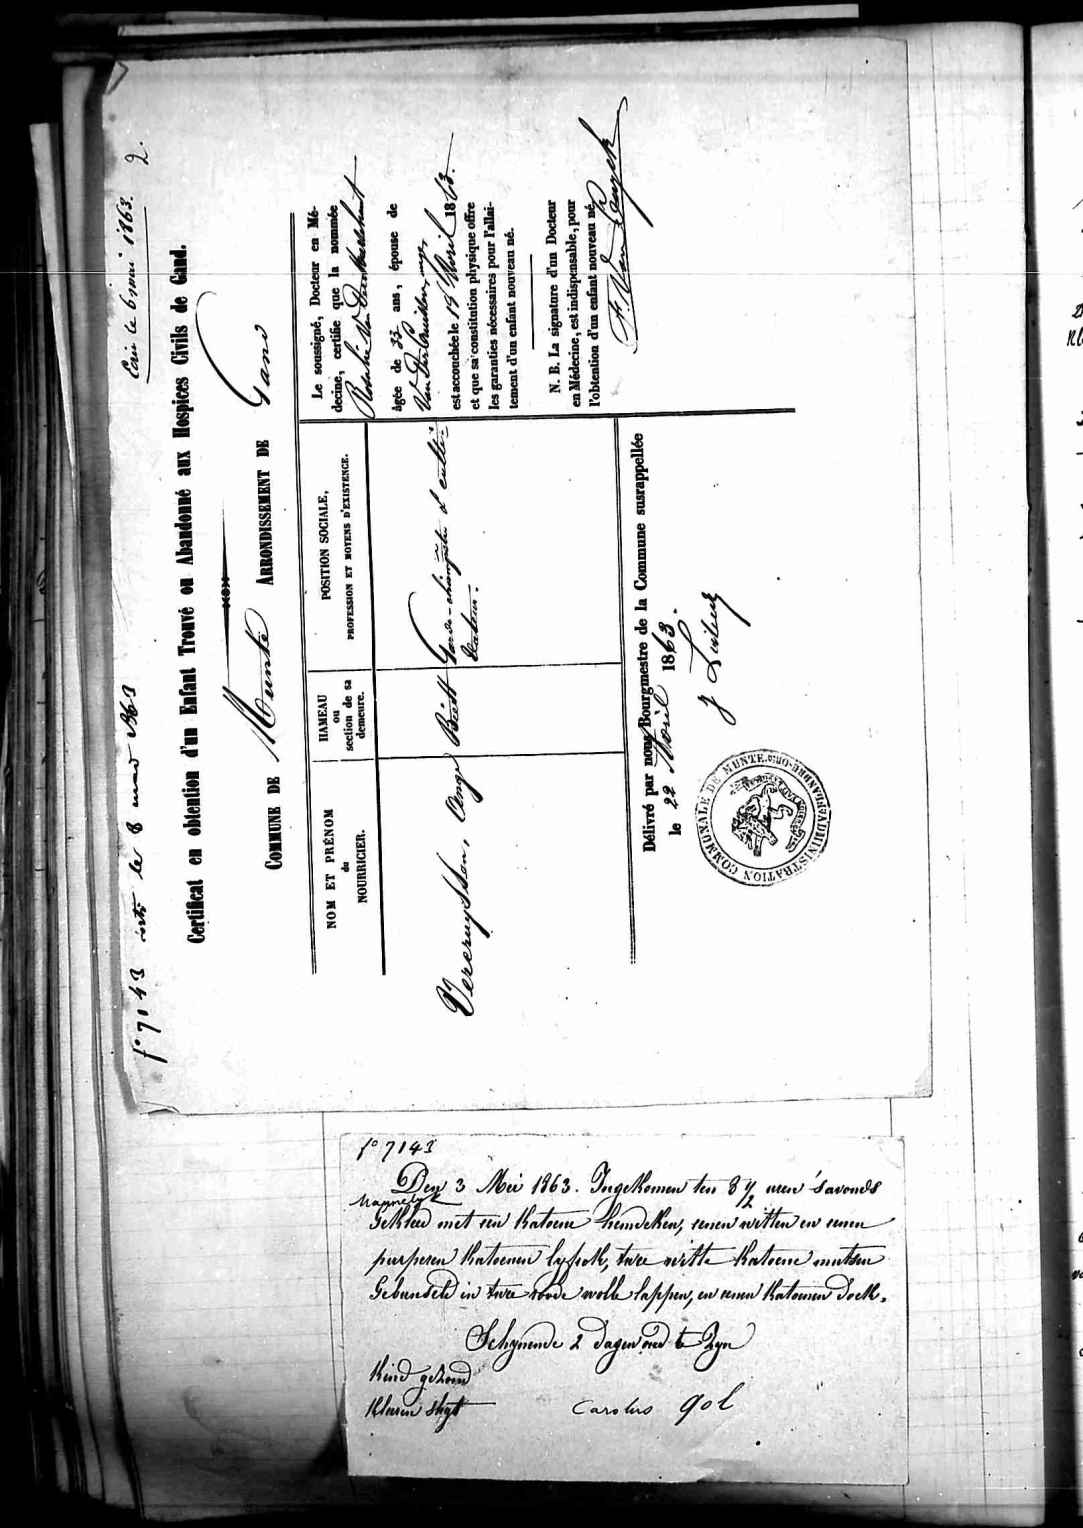 f° 7143 le 8 mai 1863
Ecrit le 6 mai 1863. 2.
Certificat en obtention d'un Enfant Trouvé ou Abandonné aux Hospices Civils de Gand.
COMMUNE DE Munte ARRONDISSEMENT DE Gand
NOM ET PRÉNOM
du
NOURRICIER.
HAMEAU
ou
section de sa
demeure.
POSITION SOCIALE,
PROFESSION ET MOYENS D'EXISTENCE.
Vercruyssen, Ange
Garde-champêtre et culti-
vateur.
Le soussigné, Docteur en Mé-
decine, certifie que la nommée
Rosalie Van
âgée de 33 ans, épouse de
est accouchée le 19 Avril 1863.
et que sa constitution physique offre
les garanties nécessaires pour l'allai-
tement d'un enfant nouveau né.
N. B. La signature d'un Docteur
en Médecine, est indispensable, pour
l'obtention d'un enfant nouveau né.
Délivré par nous Bourgmestre de la Commune susrappellée
le 22 Avril 1863.
ADMINISTRATION COMMUNALE DE MUNTE
f° 7143
Den 3 Mei 1863. Ingekomen ten 8 1/2 uren 's avonds
Mannelyk
Gekleed met een Katoene hemdeken, eenen witten en eenen
purperen Katoenen lyfrok, twee witte Katoene mutsen
Gebundeld in twee roode wolle lappen, en eenen Katoenen doek.
Schynende 2 dagen oud te Zyn
Kind gezond
Kleeren slegt Carolus Gol